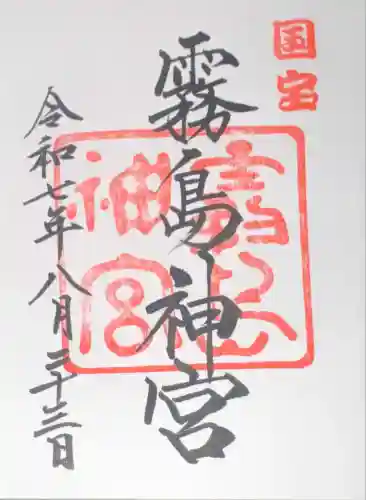 国宝
霧島神宮
令和七年八月二十三日
霧島神宮